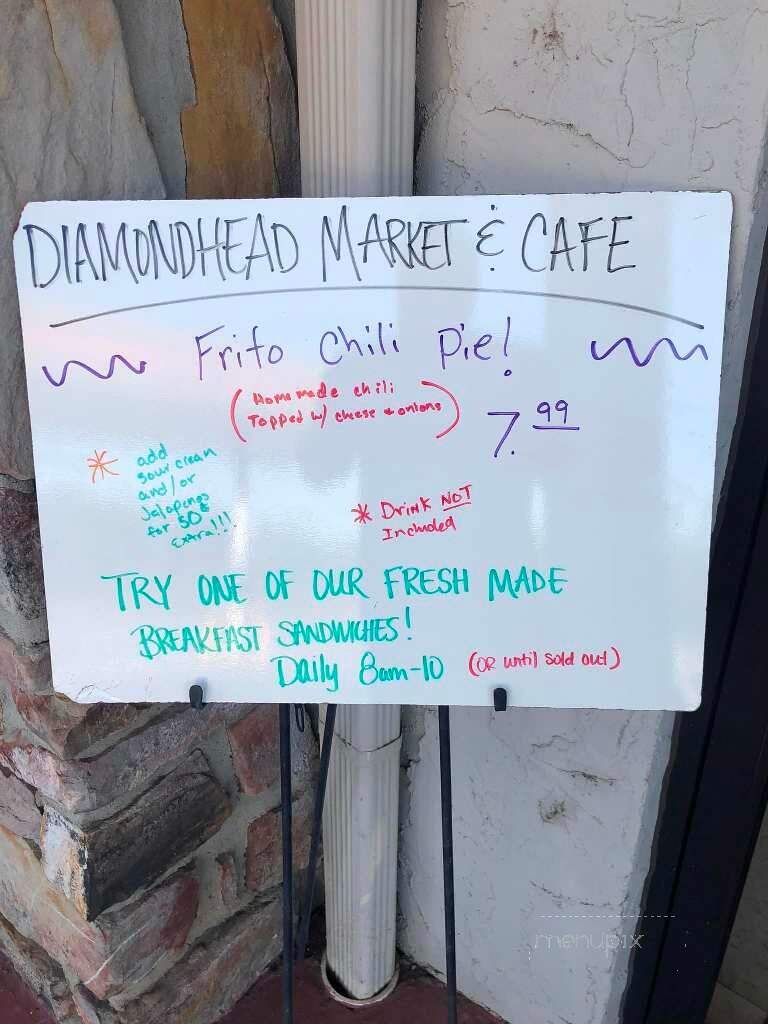 DIAMONDHEAD MARKET & CAFE
Frito Chili Pie!
(Homemade chili
Topped w/ cheese & onions)
7.99
* add
sour cream
and/or
Jalapenos
for 50¢
extra!!!
* Drink NOT
Included
TRY ONE OF OUR FRESH MADE
BREAKFAST SANDWICHES!
Daily 8am-10 (OR until sold out)
menupix